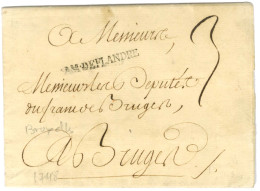 A Messieurs
AM·DEFLANDRE
Messieurs les Deputés
du franc de Bruges,
Bruxelles
A Bruges
1746